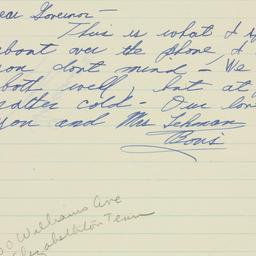 Dear Governor—
This is what I s
about over the phone, I
you dont mind — We
both well, but at
rather cold — Our lov
you and Mrs Lehman
Boris
Williams Ave
Elizabethton Tenn